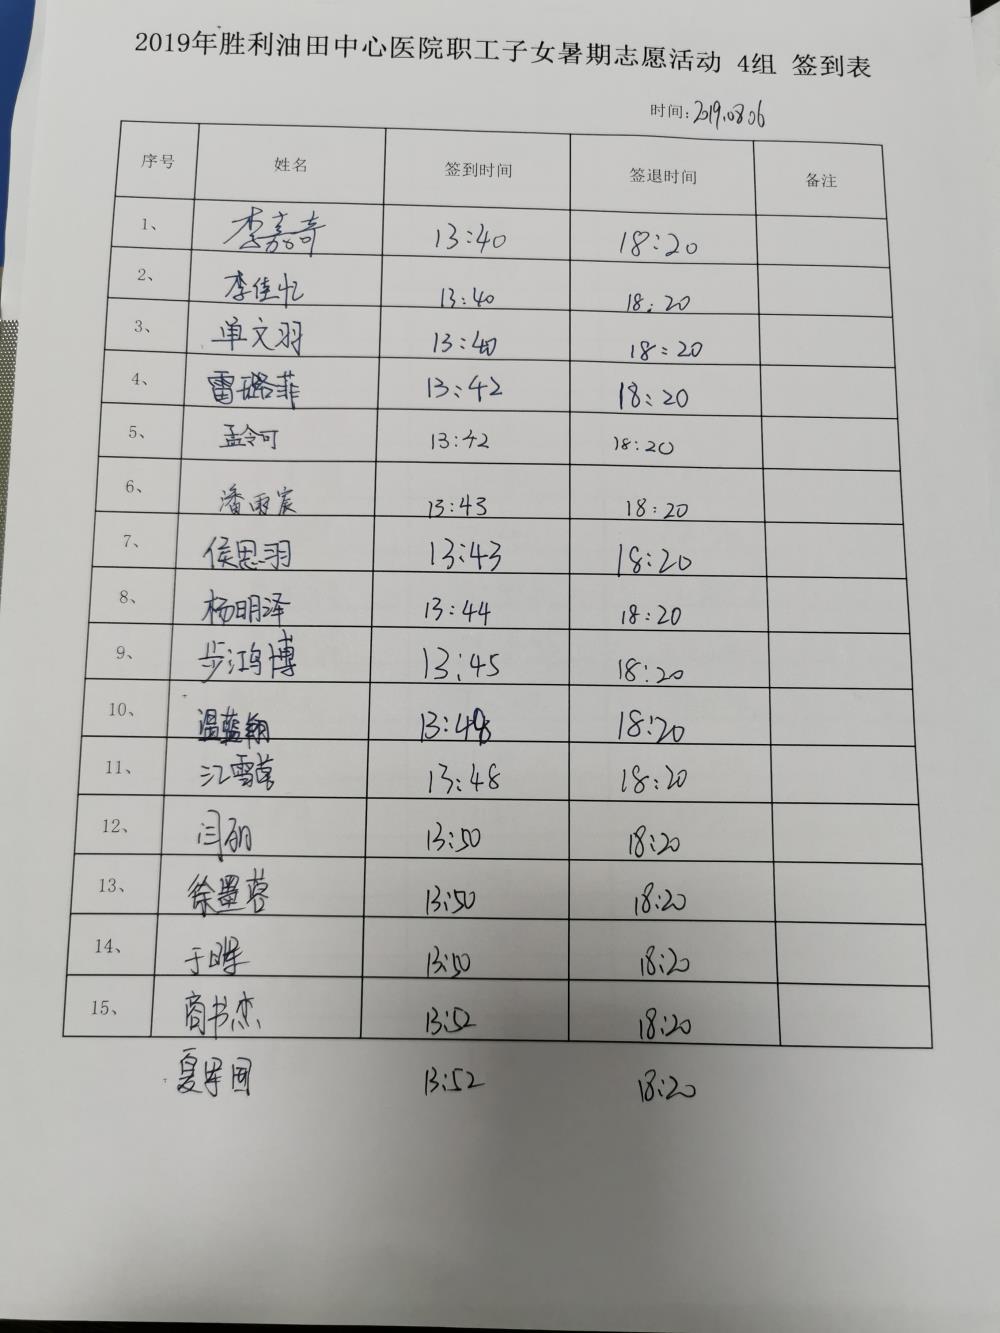 2019年胜利油田中心医院职工子女暑期志愿活动 4组 签到表
时间:2019.08.06
序号 姓名 签到时间 签退时间 备注
1、 李嘉奇 13:40 18:20
2、 李佳忆 13:40 18:20
3、 单文羽 13:40 18:20
4、 雷璐菲 13:42 18:20
5、 孟令可 13:42 18:20
6、 潘雨宸 13:43 18:20
7、 侯思羽 13:43 18:20
8、 杨明泽 13:44 18:20
9、 步江鸿博 13:45 18:20
10、 温蓝翔 13:48 18:20
11、 江雪莹 13:48 18:20
12、 闫硕 13:50 18:20
13、 徐墨蓉 13:50 18:20
14、 于晖 13:50 18:20
15、 商书杰 13:52 18:20
夏 13:52 18:20